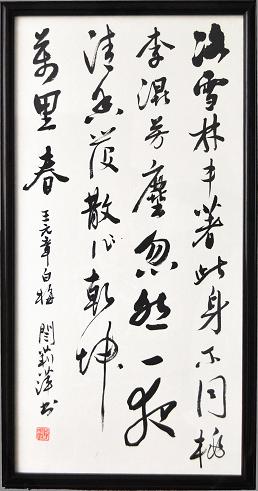 冰雪林中著此身不同桃
李混芳塵忽然一夜
清香發散作乾坤
萬里春
王元章白梅 閆莉萍书